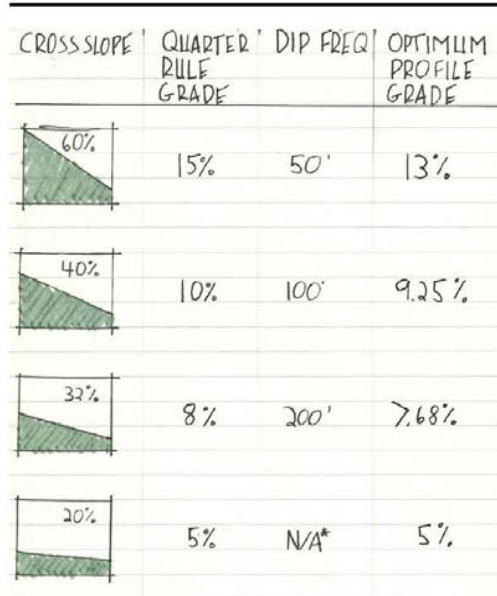 CROSS SLOPE QUARTER RULE GRADE DIP FREQ OPTIMUM PROFILE GRADE
60% 15% 50' 13%
40% 10% 100' 9.25%
32% 8% 200' 7.68%
20% 5% N/A* 5%